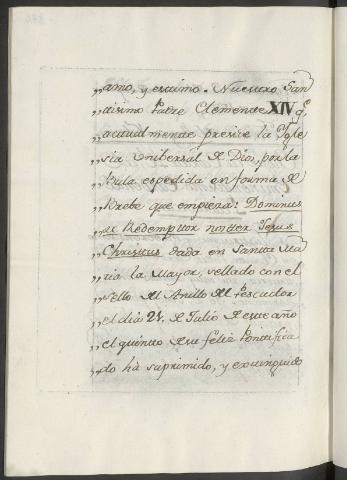 „amo, y estimo. Nuestro San
„tisimo Padre Clemente XIV q.e
„actualmente preside la Igle
„sia Unibersal de Dios, por la
„Bula expedida en forma de
„Brebe que empieza: Dominus
„ac Redemptor noster Jesus
„Christus dada en Santa Ma
„ria la Mayor, sellado con el
„sello del Anillo del Pescador
„el dia 21. de Julio de este año
„el quinto de su feliz Pontifica
„do há suprimido, y extinguido